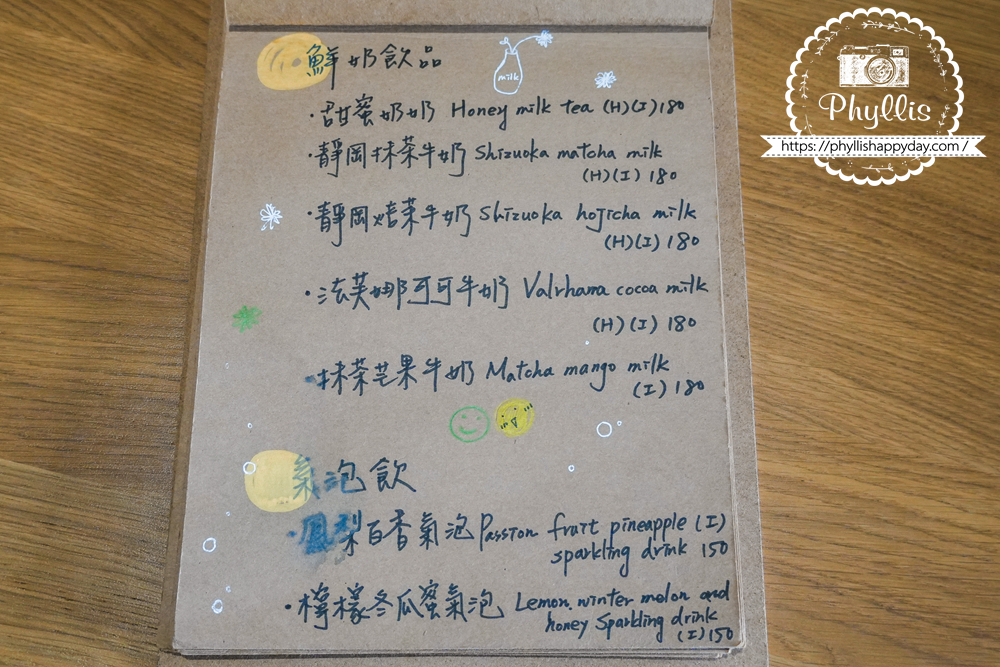 鮮奶飲品
milk
·甜蜜奶奶 Honey milk tea (H)(I) 180
·靜岡抹茶牛奶 Shizuoka matcha milk
(H)(I) 180
·靜岡焙茶牛奶 Shizuoka hojicha milk
(H)(I) 180
·法芙娜可可牛奶 Valrhana cocoa milk
(H)(I) 180
·抹茶芒果牛奶 Matcha mango milk
(I) 180
氣泡飲
·鳳梨百香氣泡 Passion fruit pineapple (I)
sparkling drink 150
·檸檬冬瓜蜜氣泡 Lemon. winter melon and
honey sparkling drink
(I) 150
Phyllis
https://phyllishappyday.com /